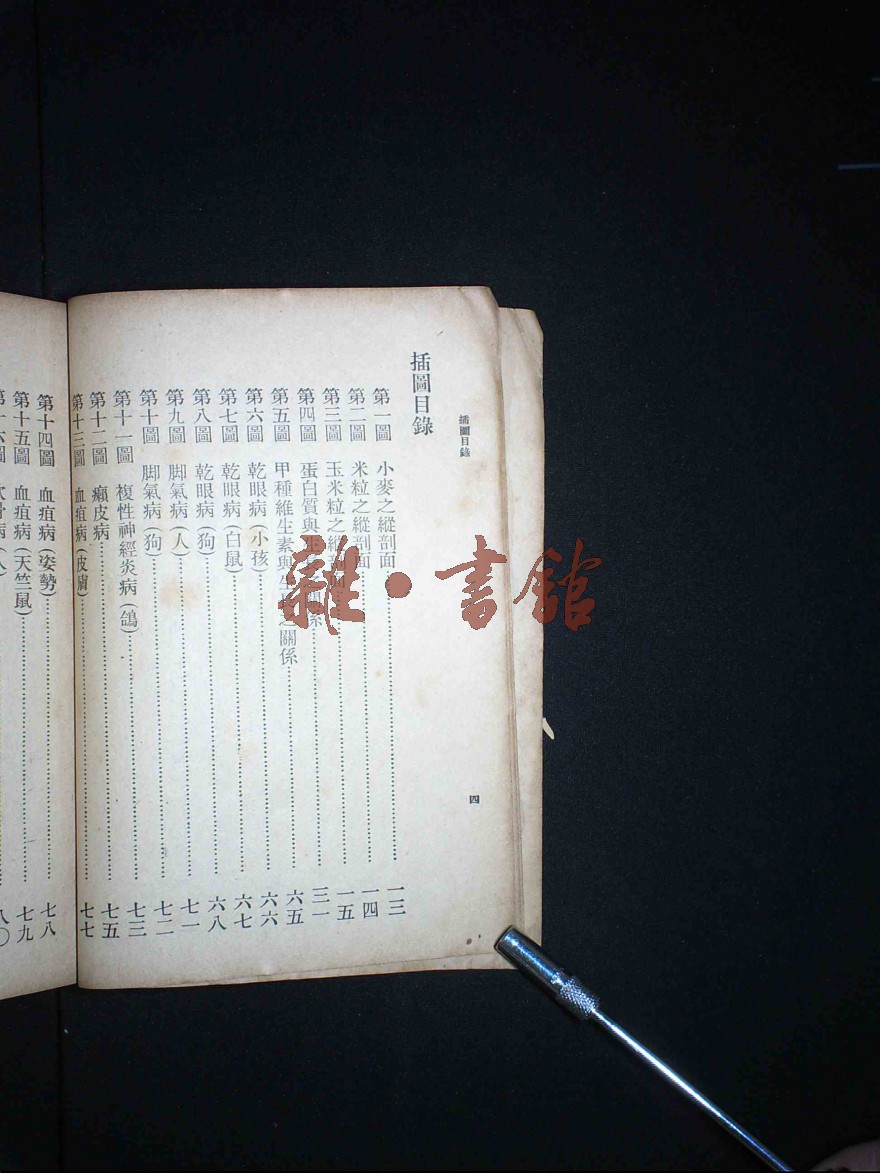 插圖目錄
四
插圖目錄
第一圖 小麥之縱剖面……一三
第二圖 米粒之縱剖面……一四
第三圖 玉米粒之縱剖面……一五
第四圖 蛋白質與生長之關係……三一
第五圖 甲種維生素與生長之關係……六五
第六圖 乾眼病(小孩)……六六
第七圖 乾眼病(白鼠)……六七
第八圖 乾眼病(狗)……六八
第九圖 脚氣病(人)……七一
第十圖 脚氣病(狗)……七二
第十一圖 複性神經炎病(鴿)……七三
第十二圖 癩皮病……七五
第十三圖 血疽病(皮膚)……七七
第十四圖 血疽病(姿勢)……七八
第十五圖 血疽病(天竺鼠)……七九
第十六圖 軟骨病(人)……八〇
雜·書館